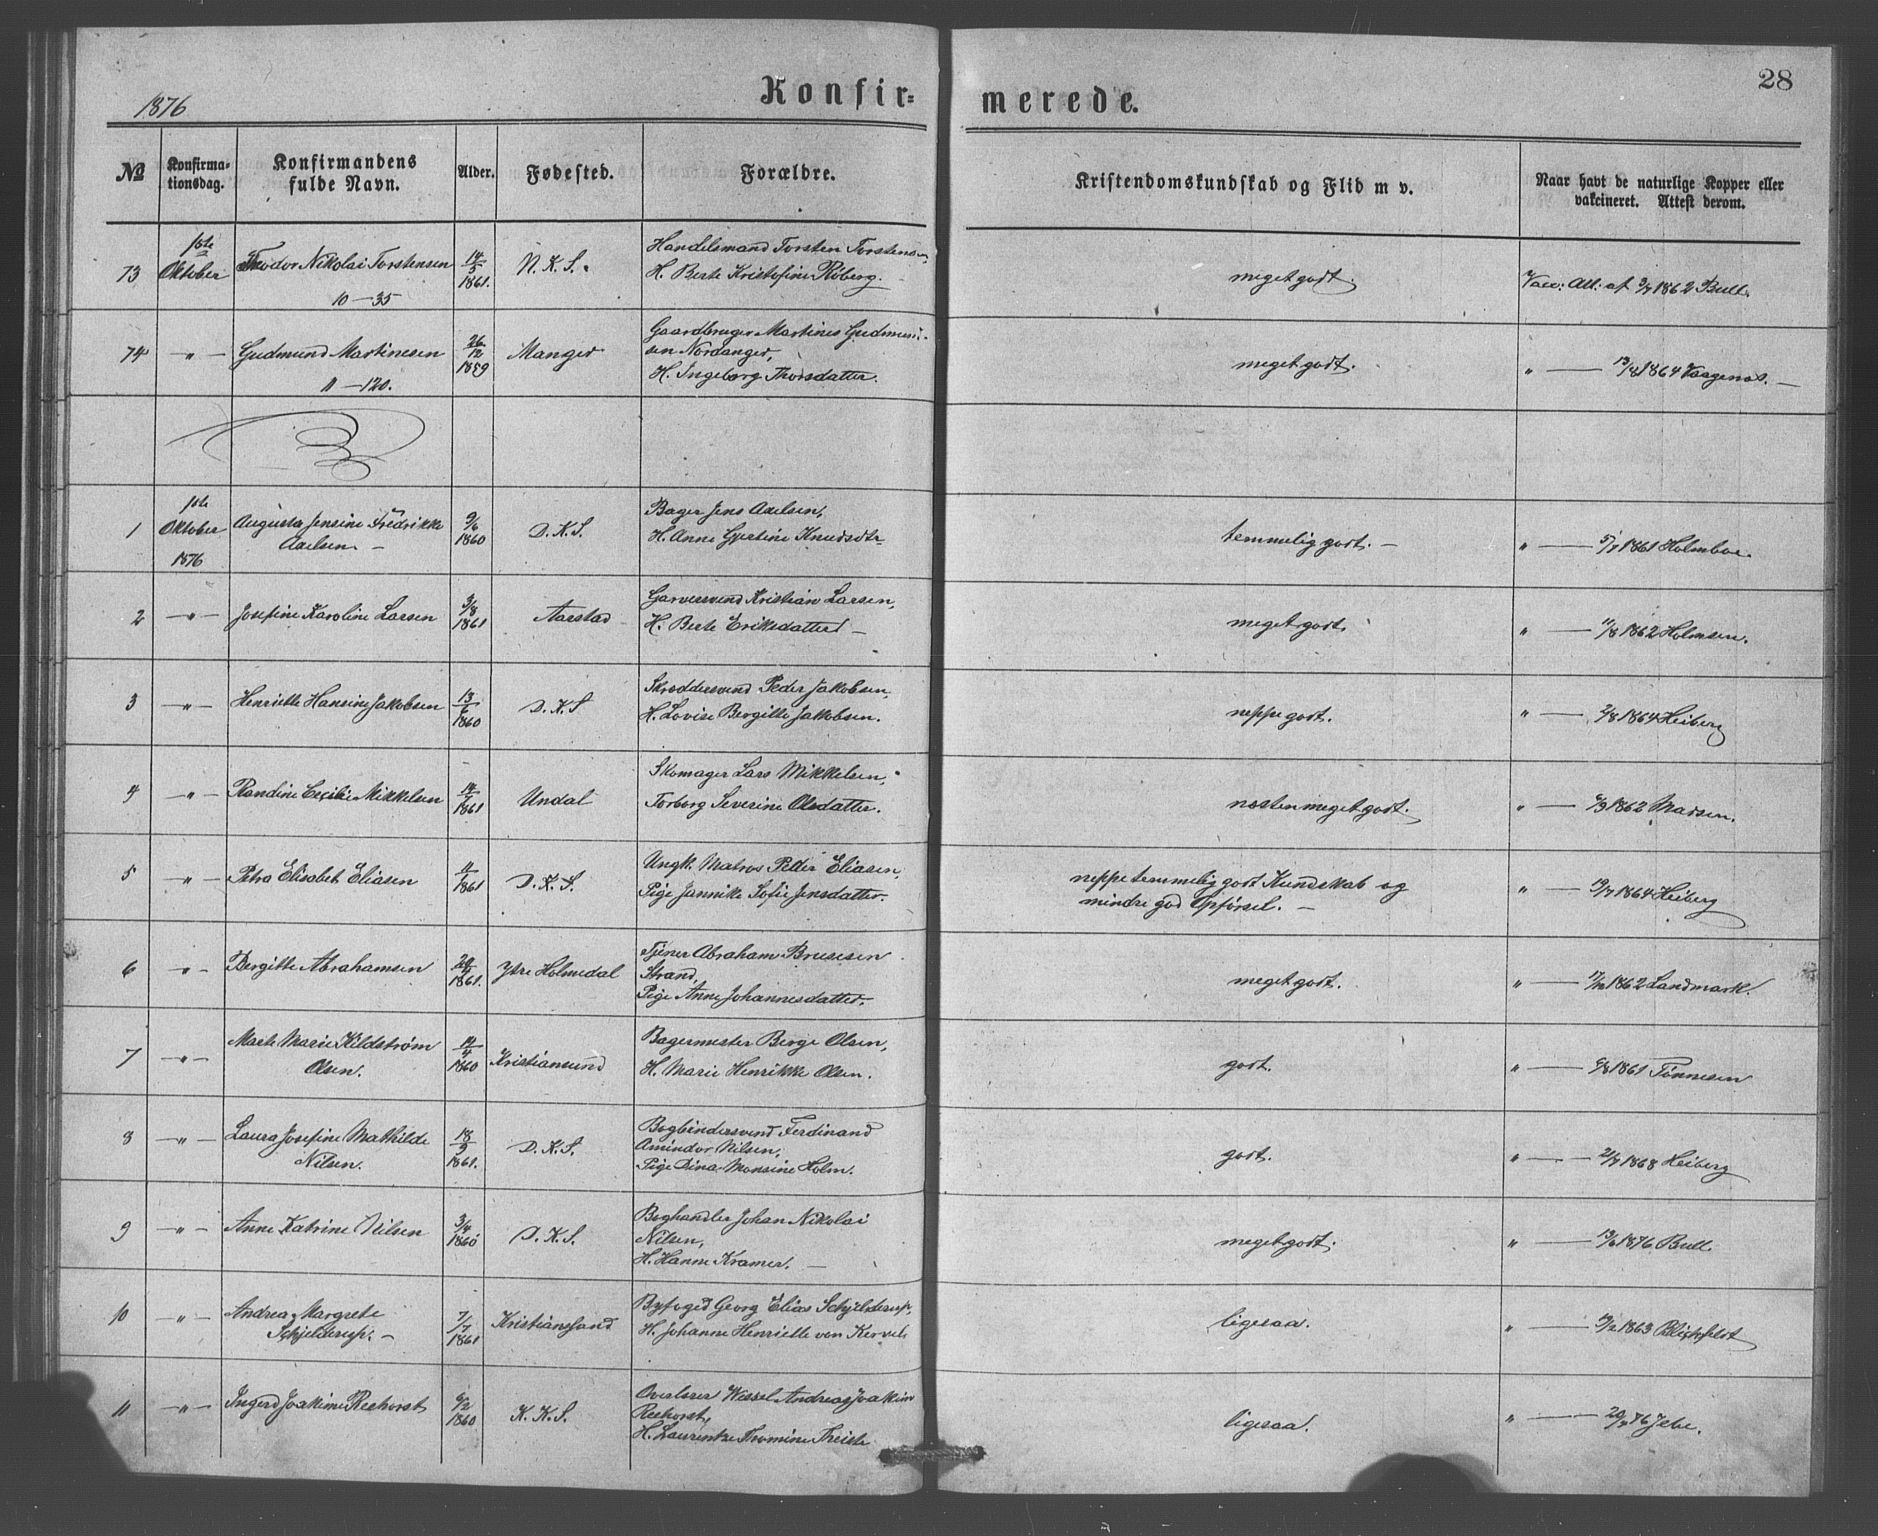 1876
Konfir=
merede.
28
No
Konfirma-
tionsdag.
Konfirmandens
fulde Navn.
Alder.
Fødested.
Forældre.
Kristendomskundskab og Flid m v.
Naar havt de naturlige Kopper eller
vakcineret. Attest derom.
73
1ste
Oktober
Theodor Nikolai Torstensen
10—35
14/5 1861.
N. K. S.
Handelsmand Torsten Torstensen,
H. Berte Kristofine Röberg.
meget godt.
Vacc: Att: af 3/7 1862 Bull.
74
—"—
Gudmund Martinesen
11—120.
26/12 1859
Manger
Gaardbruger Martines Gudmund-
sen Nordanger,
H. Ingeborg Thorsdatter.
meget godt.
" — 13/8 1864 Vaagenæs. —
1
1ste
Oktober
1876
Augusta Jensine Fredrikke
Axelsen. —
9/6 1860
D. K. S.
Bager Jens Axelsen,
H. Anne Gjertine Knudsdtr
temmelig godt. —
" — 5/7 1861 Holmboe.
2
—"—
Josefine Karoline Larsen
3/8 1861
Aarstad
Garversvend Kristian Larsen,
H. Berte Eriksdatter —
meget godt.
" — 11/8 1862 Holmsen.
3
—"—
Henriette Hansine Jakobsen
13/6 1860
D. K. S
Skræddersvend Peder Jakobsen,
H. Lovise Bergitte Jakobsen.
neppe godt.
" — 2/8 1864 Heiberg
4
—"—
Randine Cecilie Mikkelsen
14/7 1861
Undal
Skomager Lars Mikkelsen,
Torborg Severine Olsdatter.
næsten meget godt.
" — 6/9 1862 Madsen.
5
—"—
Petra Elisabet Eliasen
11/ 1861
D. K. S.
Ungk. Matros Peder Eliasen,
Pige Jannike Sofie Jensdatter.
neppe temmelig godt Kundskab og
mindre god Opførsel. —
" — 19/7 1864 Heiberg
6
—"—
Bergitte Abrahamsen
20/4 1861.
Ytre Holmedal
Tjener Abraham Brusesen
Strand,
Pige Anne Johannesdatter.
meget godt.
" — 17/10 1862 Landmark.
7
—"—
Marte Marie Kildstrøm
Olsen.
14/4 1860
Kristiansund
Bagermester Berge Olsen,
H. Marie Henrikke Olsen.
godt.
" — 6/8 1861 Tönnesen
8
—"—
Laura Josefine Mathilde
Nilsen.
18/9 1861.
D. K. S.
Bogbindersvend Ferdinand
Amindor Nilsen,
Pige Dina Monsine Holm.
godt.
" — 21/7 1868 Heiberg
9
—"—
Anne Katrine Nilsen
3/4 1860
D. K. S.
Boghandler Johan Nikolai
Nilsen,
H. Hanne Kramer. —
meget godt.
" — 19/6 1876 Bull.
10
—"—
Andrea Margrete
Schjelderup. —
7/7 1861
Kristianssand
Byfoged Georg Elias Schjelderup,
H. Johanne Henriette von Kervel.
ligesaa.
" — 19/2 1863 Blichfeldt
11
—"—
Ingerd Joakime Reehorst
6/2 1860
K. K. S.
Overlærer Wessel Andreas Joakim
Reehorst,
H. Laurentze Thomine Theiste
ligesaa.
" — 20/7 76 Jebe.